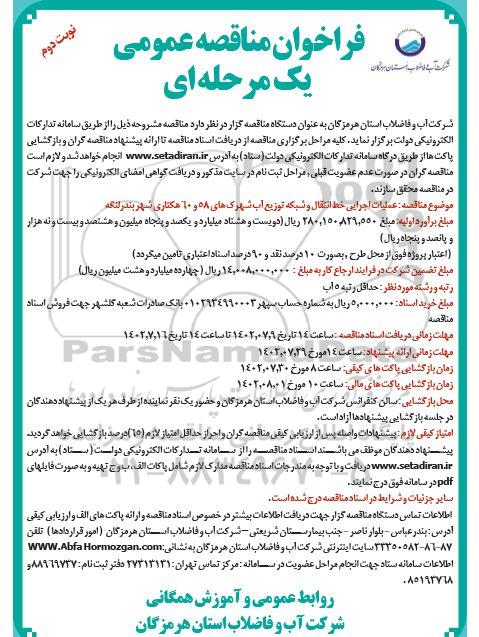 نوبت دوم
فراخوان مناقصه عمومی
یک مرحله ای
شرکت آب و فاضلاب استان هرمزگان
شرکت آب و فاضلاب استان هرمزگان به عنوان دستگاه مناقصه گزار در نظر دارد مناقصه مشروحه ذیل را از طریق سامانه تدارکات
الکترونیکی دولت برگزار نماید. کلیه مراحل برگزاری مناقصه از دریافت اسناد مناقصه تا ارائه پیشنهاد مناقصه گران و بازگشایی
پاکت ها از طریق درگاه سامانه تدارکات الکترونیکی دولت (ستاد) به آدرس www.setadiran.ir انجام خواهد شد و لازم است
مناقصه گران در صورت عدم عضویت قبلی، مراحل ثبت نام در سایت مذکور و دریافت گواهی امضای الکترونیکی را جهت شرکت
در مناقصه محقق سازند.
موضوع مناقصه: عملیات اجرایی خط انتقال و شبکه توزیع آب شهرک های ۵۸ و ۶۰ هکتاری شهر بندرلنگه
مبلغ برآورد اولیه: مبلغ ۲۸۰,۱۵۰,۸۲۹,۵۵۰ ریال (دویست و هشتاد میلیارد و یکصد و پنجاه میلیون و هشتصد و بیست و نه هزار
و پانصد و پنجاه ریال)
(اعتبار پروژه فوق از محل طرح، بصورت ۱۰ درصد نقد و ۹۰ درصد اسناد اعتباری تامین میگردد)
مبلغ تضمین شرکت در فرایند ارجاع کار به مبلغ: ۱۴,۰۰۸,۰۰۰,۰۰۰ ریال (چهارده میلیارد و هشت میلیون ریال)
رتبه و رشته مورد نظر: حداقل رتبه ۵ آب
مبلغ خرید اسناد: ۵,۰۰۰,۰۰۰ ریال به شماره حساب سپهر ۰۱۰۲۹۳۴۹۹۰۰۰۳ بانک صادرات شعبه گلشهر جهت فروش اسناد
مناقصه
مهلت زمانی دریافت اسناد مناقصه: ساعت ۱۴ تاریخ ۱۴۰۲,۰۷,۹ تا ساعت ۱۴ تاریخ ۱۴۰۲,۷,۱۶
مهلت زمانی ارائه پیشنهاد: ساعت ۱۴ مورخ ۱۴۰۲,۰۷,۲۹
زمان بازگشایی پاکت های کیفی: ساعت ۸ مورخ ۱۴۰۲,۰۷,۳۰
زمان بازگشایی پاکت های مالی: ساعت ۱۰ مورخ ۱۴۰۲,۰۸,۰۱
محل بازگشایی: سالن کنفرانس شرکت آب و فاضلاب استان هرمزگان و حضور یک نفر نماینده از طرف هر یک از پیشنهاد دهندگان
در جلسه بازگشایی پیشنهادها آزاد است.
امتیاز کیفی لازم: پیشنهادات واصله پس از ارزیابی کیفی مناقصه گران و احراز حداقل امتیاز لازم (۶۵) درصد بازگشایی خواهد گردید.
پیشنهاد دهندگان موظف می باشند اسناد مناقصه را از سامانه تدارکات الکترونیکی دولت (ستاد) به آدرس
www.setadiran.ir دریافت و با توجه به مندرجات اسناد مناقصه مدارک لازم شامل پاکات الف، ب و ج تهیه و به صورت فایلهای
pdf در سامانه فوق درج نمایند.
سایر جزئیات و شرایط در اسناد مناقصه درج شده است.
اطلاعات تماس دستگاه مناقصه گزار جهت دریافت اطلاعات بیشتر در خصوص اسناد مناقصه و ارائه پاکت های الف و ارزیابی کیفی
آدرس: بندرعباس - بلوار ناصر - جنب بیمارستان شریعتی - شرکت آب و فاضلاب استان هرمزگان (امور قراردادها) تلفن
۳۳۳۵۰۵۸۲-۸۶-۸۷ سایت اینترنتی شرکت آب و فاضلاب استان هرمزگان به نشانی: WWW.Abfa Hormozgan.com
اطلاعات سامانه ستاد جهت انجام مراحل عضویت در سامانه: مرکز تماس تهران: ۲۷۳۱۳۱۳۱ دفتر ثبت نام: ۸۸۹۶۹۷۳۷ و
۸۵۱۹۳۷۶۸.
روابط عمومی و آموزش همگانی
شرکت آب و فاضلاب استان هرمزگان